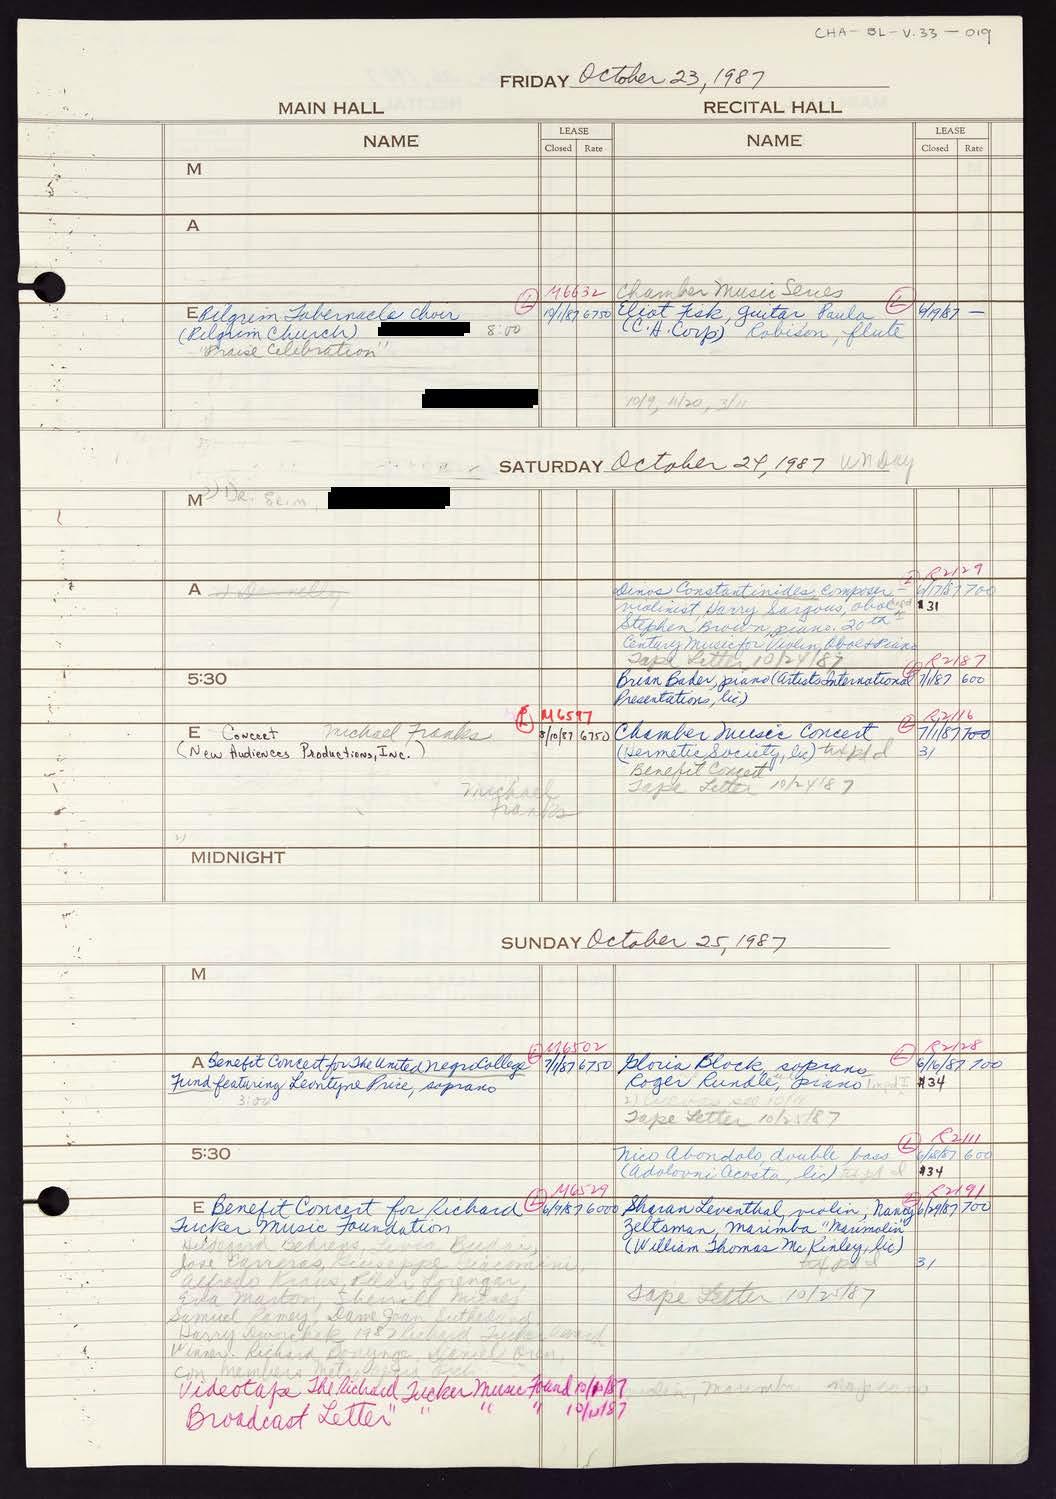 CHA-BL-V.33-019
FRIDAY October 23, 1987
MAIN HALL RECITAL HALL
NAME LEASE Closed Rate NAME LEASE Closed Rate
M
A
M6632 Chamber Music Series
E Pilgrim Tabernacle Choir L 10/1/87 6750 Eliot Fisk, guitar Paula L 9/9/87 —
(Pilgrim Church) 8:00 (C.H. Corp) Robison, flute
"Praise Celebration"
10/9, 11/20, 3/11
SATURDAY October 24, 1987 UN Day
M
R2129
A Dinos Constantinides, composer - 6/17/87 700
violinist, Harry Sargous, oboe and $31
Stephen Brown, piano. 20th
Century Music for Violin, Oboe & Piano
Tape Letter 10/24/87
R2187
5:30 Brian Bader, piano (Artists International 7/1/87 600
Presentations, lic)
M6597 R2116
E Concert Michael Franks L 8/10/87 6750 Chamber Music Concert L 7/1/87 700
(New Audiences Productions, Inc.) (Hermetic Society, lic) 31
Benefit Concert
Michael Tape Letter 10/24/87
Franks
MIDNIGHT
SUNDAY October 25, 1987
M
M6502 R2128
A Benefit Concert for The United Negro College L 7/1/87 6750 Gloria Block, soprano L 6/16/87 700
Fund featuring Leontyne Price, soprano Roger Rundle, piano $34
3:00
Tape Letter 10/25/87
R2111
5:30 Nico Abondolo, double bass L 600
(Adolovni Acosta, lic) $34
M6529 R2191
E Benefit Concert for Richard L 6/9/87 6000 Sharan Leventhal, violin, Nancy L 6/29/87 700
Tucker Music Foundation Zeltsman, marimba "Marimolin"
Hildegard Behrens, (William Thomas McKinley, lic)
Jose Carreras, Giuseppe Giacomini, 31
Alfredo Kraus, Pilar Lorengar,
Eva Marton, Sherrill Milnes Tape Letter 10/25/87
Samuel Ramey, Dame Joan Sutherland,
Harry Dworchak 1987 Richard Tucker Award
Winner. Richard Bonynge, Daniel Oren,
con. Members
Videotape The Richard Tucker Music Found marimba
Broadcast Letter " " " "